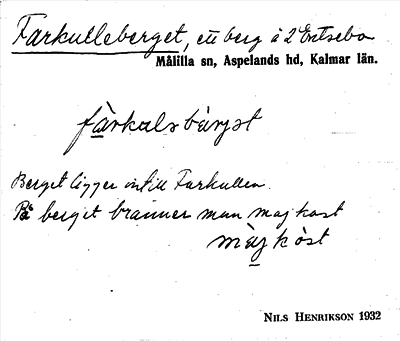 Farkulleberget, ett berg å 2 Entsebo
Målilla sn, Aspelands hd, Kalmar län.
färkulsbärgət
Berget ligger intill Farkullen.
På berget bränner man majkast
màjkòst
NILS HENRIKSON 1932